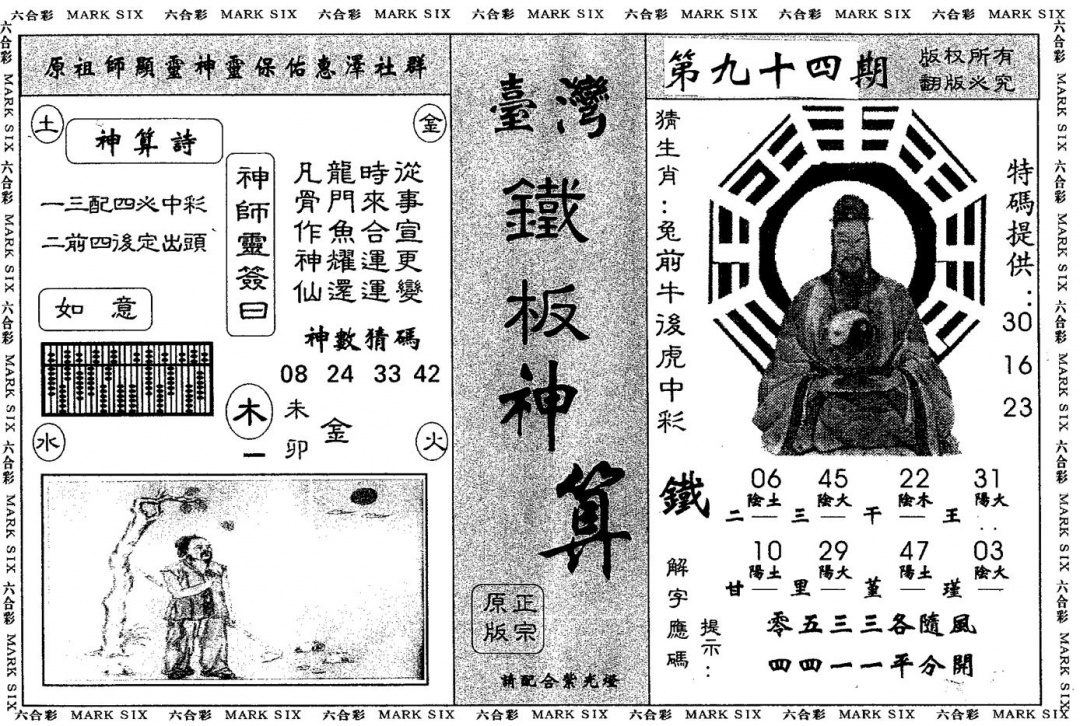 六合彩 MARK SIX 六合彩 MARK SIX 六合彩 MARK SIX 六合彩 MARK SIX 六合彩 MARK SIX 六合彩 MARK SIX 六合彩 MARK SIX
原祖師顯靈神靈保佑惠澤社群
土
神算詩
金
一三配四必中彩
二前四後定出頭
如意
神師靈簽曰
從事宣更變
時來合運運
龍門魚耀還
凡骨作神仙
神數猜碼
08 24 33 42
木
一
未
卯
金
水
火
臺灣
鐵板神算
正宗
原版
請配合紫光燈
第九十四期
版权所有
翻版必究
猜生肖：兔前牛後虎中彩
特碼提供：
30
16
23
鐵
06 45 22 31
陰土 陰火 陰木 陽火
二 — 三 — 干 — 王 ..
10 29 47 03
陽土 陽火 陽土 陰火
甘 — 里 — 堇 — 瑾 —
解字應碼
提示：
零五三三各隨風
四四一一平分開
六合彩 MARK SIX 六合彩 MARK SIX 六合彩 MARK SIX 六合彩 MARK SIX 六合彩
六合彩 MARK SIX 六合彩 MARK SIX 六合彩 MARK SIX 六合彩 MARK SIX 六合彩 MARK SIX
六合彩 MARK SIX 六合彩 MARK SIX 六合彩 MARK SIX 六合彩 MARK SIX 六合彩 MARK SIX 六合彩 MARK SIX 六合彩 MARK SIX